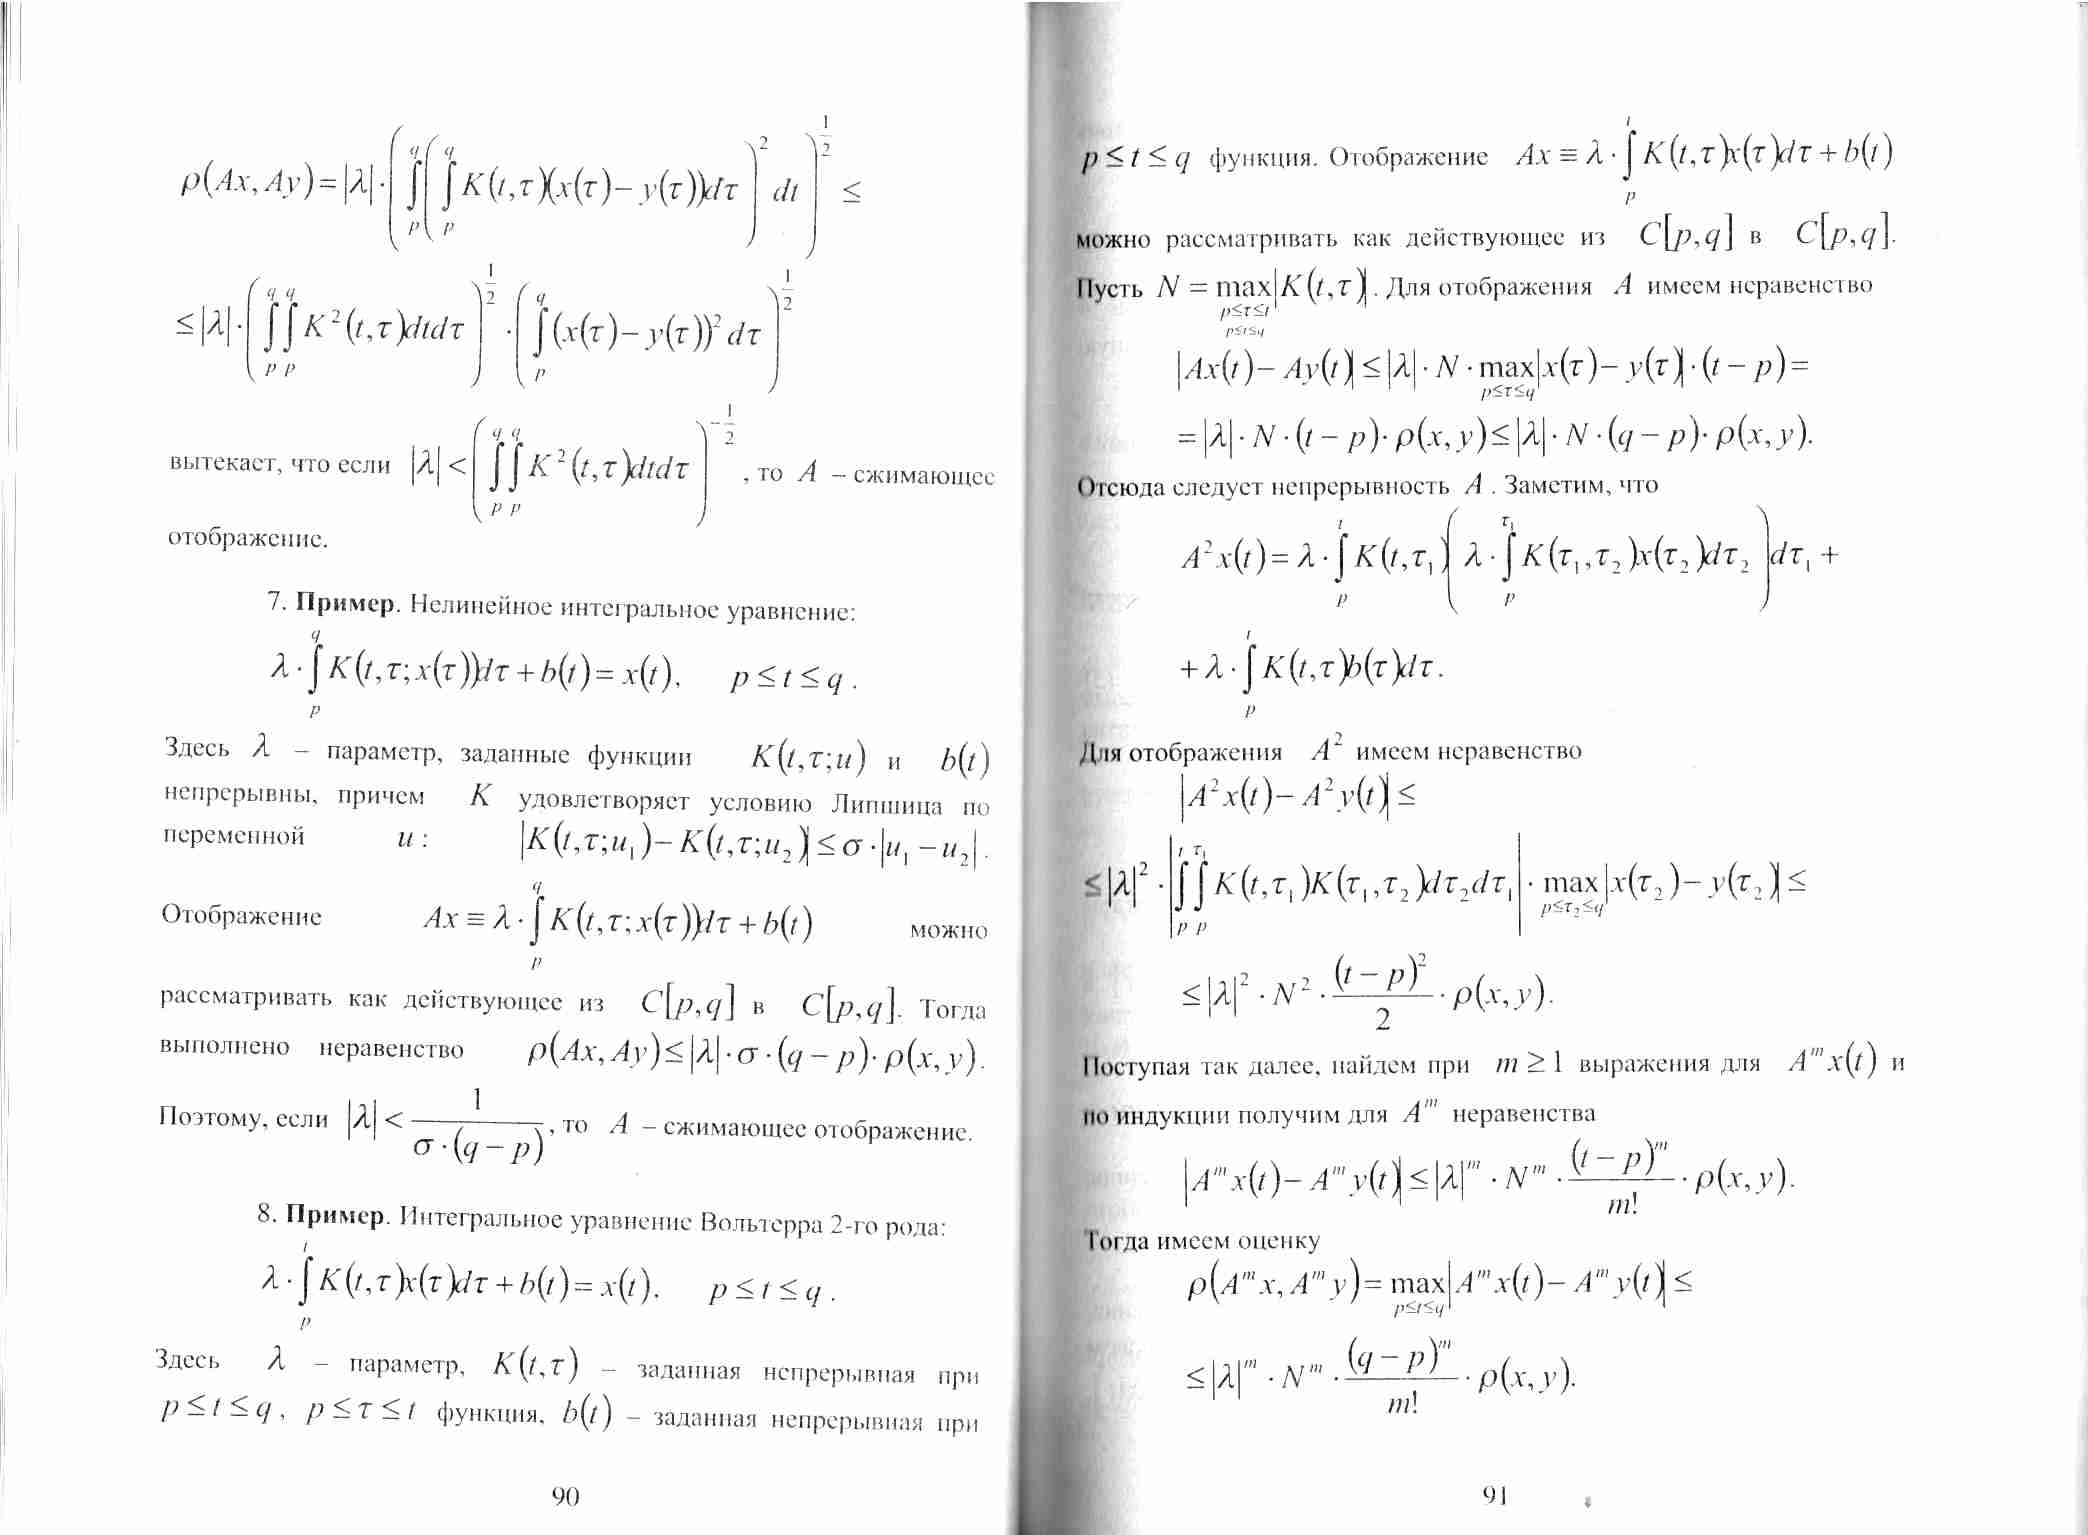 ρ(Ax, Ay) = |λ| · ( ∫_p^q ( ∫_p^q K(t,τ)(x(τ) − y(τ))dτ )^2 dt )^{1/2} ≤
≤ |λ| · ( ∫_p^q ∫_p^q K^2(t,τ)dtdτ )^{1/2} · ( ∫_p^q (x(τ) − y(τ))^2 dτ )^{1/2}
вытекает, что если |λ| < ( ∫_p^q ∫_p^q K^2(t,τ)dtdτ )^{−1/2}, то A – сжимающее
отображение.
7. Пример. Нелинейное интегральное уравнение:
λ · ∫_p^q K(t,τ; x(τ))dτ + b(t) = x(t), p ≤ t ≤ q.
Здесь λ – параметр, заданные функции K(t,τ;u) и b(t)
непрерывны, причем K удовлетворяет условию Липшица по
переменной u: |K(t,τ;u_1) − K(t,τ;u_2)| ≤ σ · |u_1 − u_2|.
Отображение Ax ≡ λ · ∫_p^q K(t,τ; x(τ))dτ + b(t) можно
рассматривать как действующее из C[p,q] в C[p,q]. Тогда
выполнено неравенство ρ(Ax, Ay) ≤ |λ| · σ · (q − p) · ρ(x, y).
Поэтому, если |λ| < 1/(σ · (q − p)), то A – сжимающее отображение.
8. Пример. Интегральное уравнение Вольтерра 2-го рода:
λ · ∫_p^t K(t,τ)x(τ)dτ + b(t) = x(t), p ≤ t ≤ q.
Здесь λ – параметр, K(t,τ) – заданная непрерывная при
p ≤ t ≤ q, p ≤ τ ≤ t функция, b(t) – заданная непрерывная при
90
p ≤ t ≤ q функция. Отображение Ax ≡ λ · ∫_p^t K(t,τ)x(τ)dτ + b(t)
можно рассматривать как действующее из C[p,q] в C[p,q].
Пусть N = max_{p≤τ≤t, p≤t≤q} |K(t,τ)|. Для отображения A имеем неравенство
|Ax(t) − Ay(t)| ≤ |λ| · N · max_{p≤τ≤q} |x(τ) − y(τ)| · (t − p) =
= |λ| · N · (t − p) · ρ(x, y) ≤ |λ| · N · (q − p) · ρ(x, y).
Отсюда следует непрерывность A. Заметим, что
A^2 x(t) = λ · ∫_p^t K(t,τ_1) ( λ · ∫_p^{τ_1} K(τ_1,τ_2)x(τ_2)dτ_2 ) dτ_1 +
+ λ · ∫_p^t K(t,τ)b(τ)dτ.
Для отображения A^2 имеем неравенство
|A^2 x(t) − A^2 y(t)| ≤
≤ |λ|^2 · | ∫_p^t ∫_p^{τ_1} K(t,τ_1)K(τ_1,τ_2)dτ_2dτ_1 | · max_{p≤τ_2≤q} |x(τ_2) − y(τ_2)| ≤
≤ |λ|^2 · N^2 · (t − p)^2/2 · ρ(x, y).
Поступая так далее, найдем при m ≥ 1 выражения для A^m x(t) и
по индукции получим для A^m неравенства
|A^m x(t) − A^m y(t)| ≤ |λ|^m · N^m · (t − p)^m/m! · ρ(x, y).
Тогда имеем оценку
ρ(A^m x, A^m y) = max_{p≤t≤q} |A^m x(t) − A^m y(t)| ≤
≤ |λ|^m · N^m · (q − p)^m/m! · ρ(x, y).
91